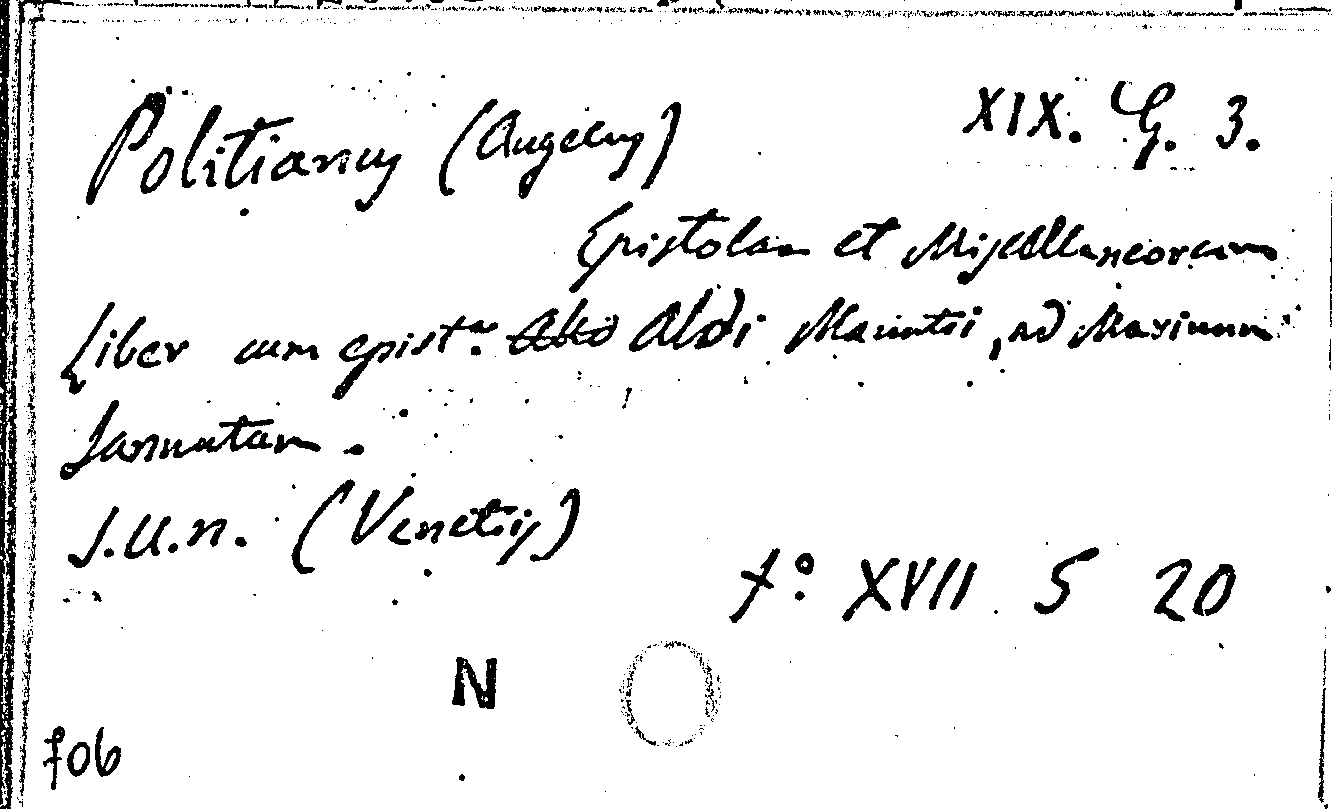 Politianus (Angelus) XIX. G. 3.
Epistolae et Miscellaneorum
Liber cum epist.ª Aldo Aldi Manutii, ad Marinum
Sannutum.
S.U.n. (Venetiis)
fº XVII S 20
N
fob